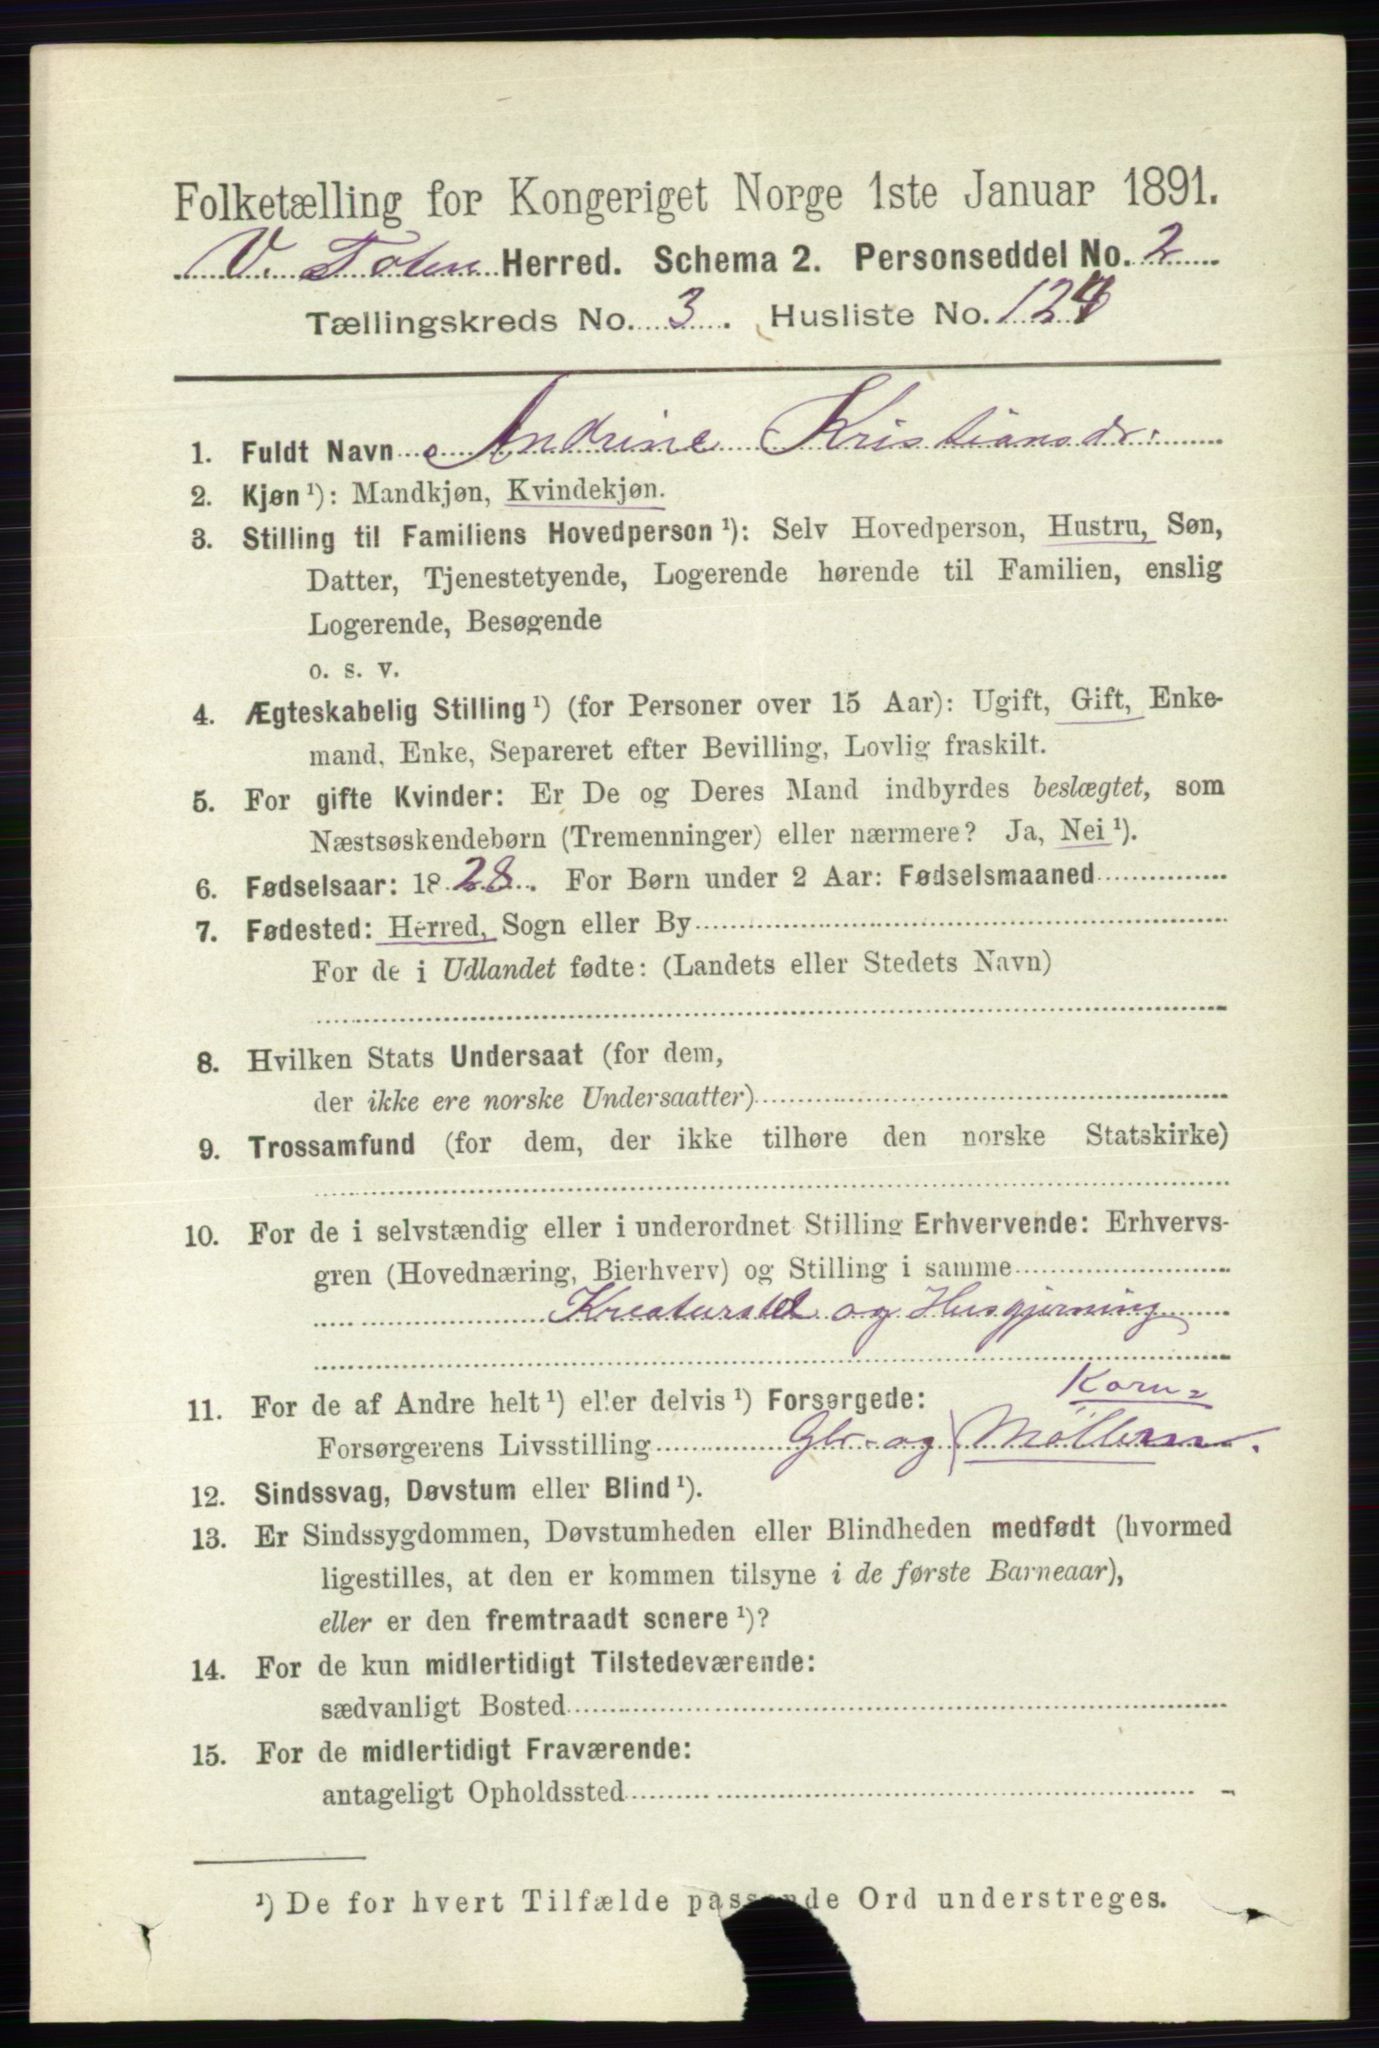 Folketælling for Kongeriget Norge 1ste Januar 1891.
V. Toten Herred. Schema 2. Personseddel No. 2
Tællingskreds No. 3. Husliste No. 127
1. Fuldt Navn Andrine Kristiansdr.
2. Kjøn ¹): Mandkjøn, Kvindekjøn.
3. Stilling til Familiens Hovedperson ¹): Selv Hovedperson, Hustru, Søn,
Datter, Tjenestetyende, Logerende hørende til Familien, enslig
Logerende, Besøgende
o. s. v.
4. Ægteskabelig Stilling ¹) (for Personer over 15 Aar): Ugift, Gift, Enke-
mand, Enke, Separeret efter Bevilling, Lovlig fraskilt.
5. For gifte Kvinder: Er De og Deres Mand indbyrdes beslægtet, som
Næstsøskendebørn (Tremenninger) eller nærmere? Ja, Nei ¹).
6. Fødselsaar: 1828. For Børn under 2 Aar: Fødselsmaaned
7. Fødested: Herred, Sogn eller By
For de i Udlandet fødte: (Landets eller Stedets Navn)
8. Hvilken Stats Undersaat (for dem,
der ikke ere norske Undersaatter)
9. Trossamfund (for dem, der ikke tilhøre den norske Statskirke)
10. For de i selvstændig eller i underordnet Stilling Erhvervende: Erhvervs-
gren (Hovednæring, Bierhverv) og Stilling i samme
Kreaturstel og Husgjerning
11. For de af Andre helt ¹) eller delvis ¹) Forsørgede: Korn-
Forsørgerens Livsstilling Gbr. og Møller
12. Sindssvag, Døvstum eller Blind ¹).
13. Er Sindssygdommen, Døvstumheden eller Blindheden medfødt (hvormed
ligestilles, at den er kommen tilsyne i de første Barneaar),
eller er den fremtraadt senere ¹)?
14. For de kun midlertidigt Tilstedeværende:
sædvanligt Bosted
15. For de midlertidigt Fraværende:
antageligt Opholdssted
¹) De for hvert Tilfælde passende Ord understreges.